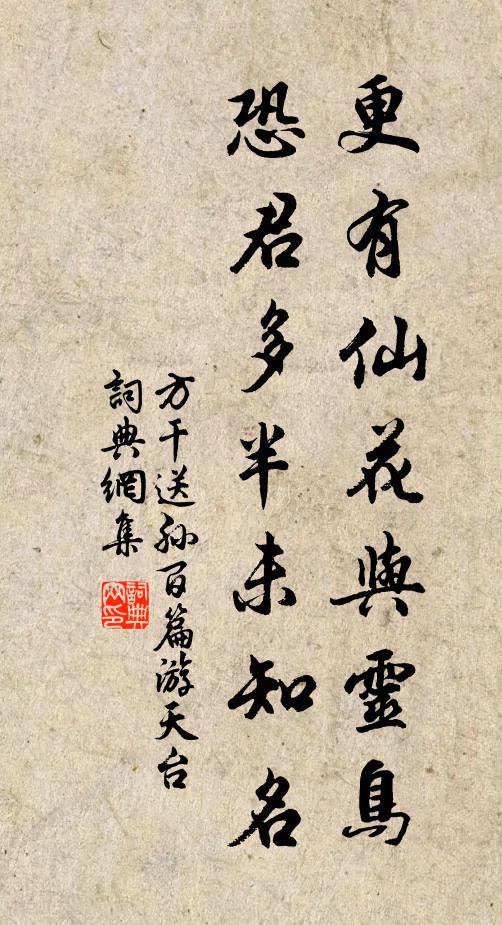 更有仙花與靈鳥
恐君多半未知名
方干送孫百篇游天台
詞典網集
詞典網印